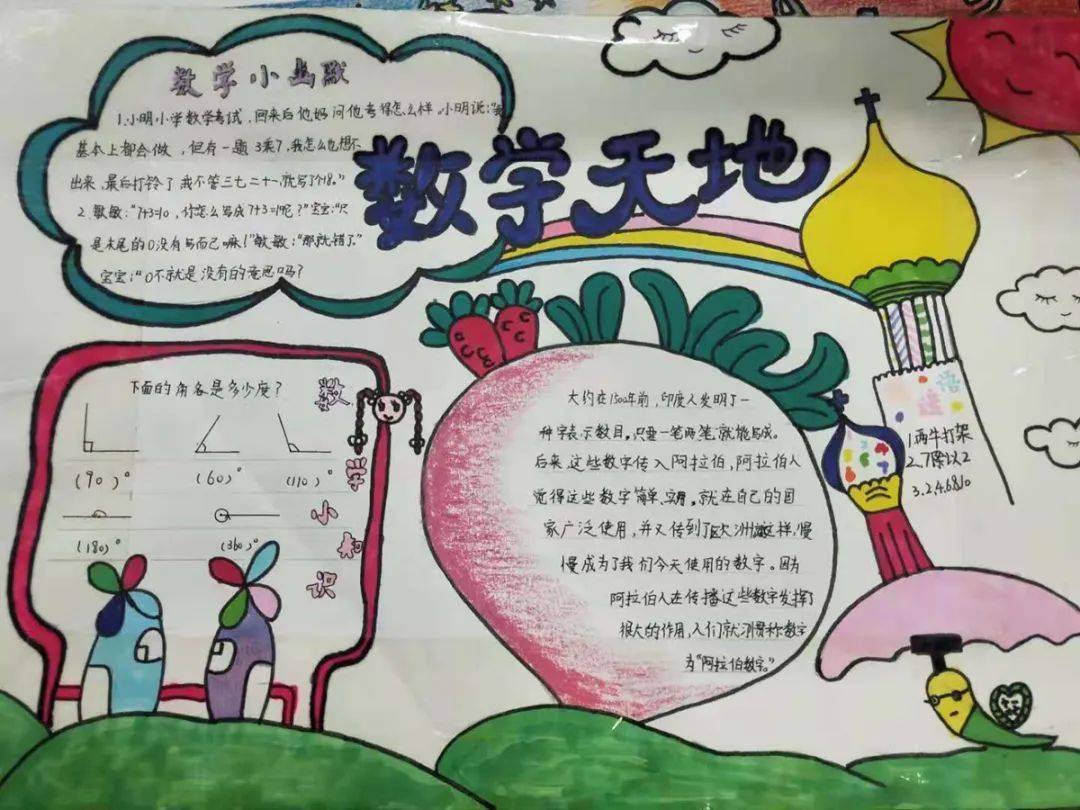 数学天地
数学小幽默
1.小明小学数学考试,回来后他妈问他考得怎么样。小明说:"我
基本上都会做,但有一题3乘7,我怎么也想不
出来,最后打铃了我不管三七二十一,就写了个18。"
2.敏敏:"7+3=10,你怎么写成7+3=1呢?"宝宝:"只
是末尾的0没有写而已嘛!"敏敏:"那就错了。"
宝宝:"0不就是没有的意思吗?
数学小知识
下面的角各是多少度?
(90)°
(60)°
(110)°
(180)°
(360)°
大约在1500年前,印度人发明了一
种字表示数目。只要一笔两笔就能写成。
后来这些数字传入阿拉伯,阿拉伯人
觉得这些数字简单、实用。就在自己的国
家广泛使用,并又传到了欧洲。就这样,慢
慢成为了我们今天使用的数字。因为
阿拉伯人在传播这些数字发挥了
很大的作用,人们就习惯称数字
为"阿拉伯数字。"
谜语
1.两牛打架
2.7除以2
3.2.4.6.8.10